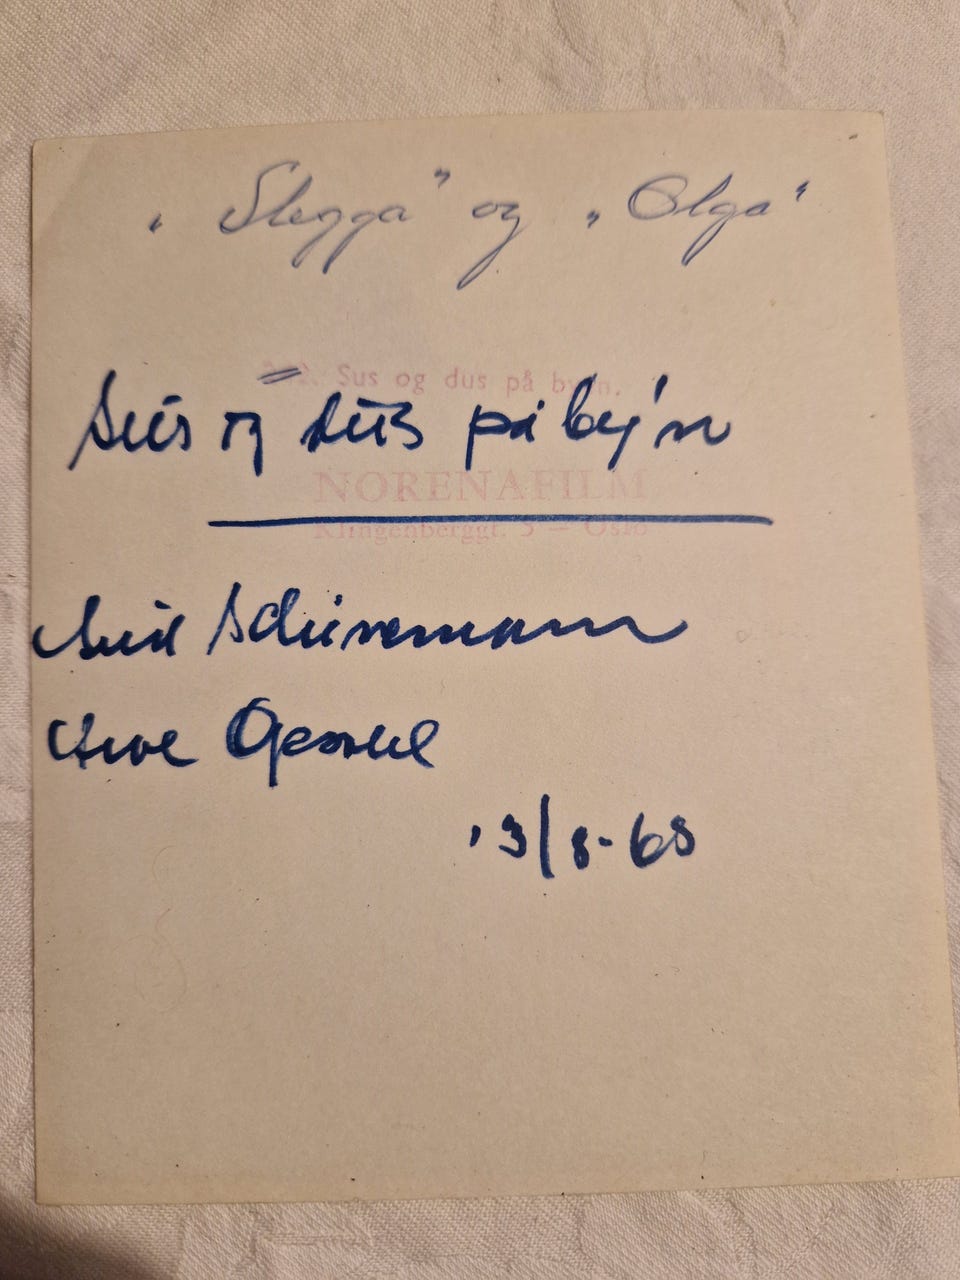 „Slegga" og „Olga"
Sus og dus på by'n.
Sus og dus på by'n
NORENAFILM
Klingenberggt. 5 — Oslo
Schünemann
Arve Opsahl
13/8-68